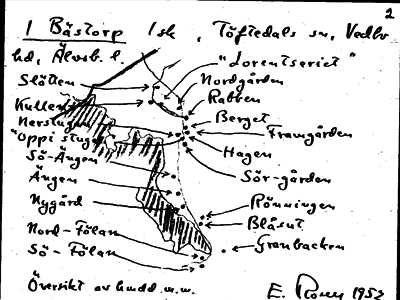 2
1 Bästorp 1 sk , Töftedals sn, Vedbo
hd, Älvsb. l.
"Lorentseriet"
Slätten
Nordgården
Kullen
Rabben
Nerstugan
Berget
"Oppi stugo"
Framgården
Sö-Ängen
Hagen
Ängen
Sör-gården
Nygård
Rönningen
Blåsut
Nord-Fölan
Granbacken
Sö-Fölan
Översikt av hmdd. m.m.
E. 1952